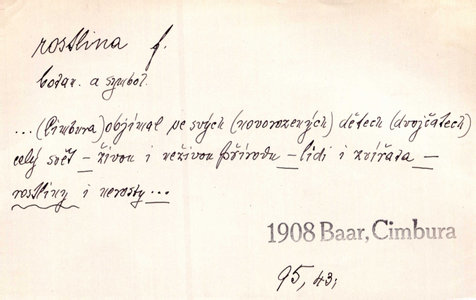 rostlina f.
botan. a symbol.
...(Cimbura) objímal ve svých (novorozených) dětech (dvojčatech)
celý svět – živou i neživou přírodu – lidi i zvířata –
rostliny i nerosty...
1908 Baar, Cimbura
95, 43;